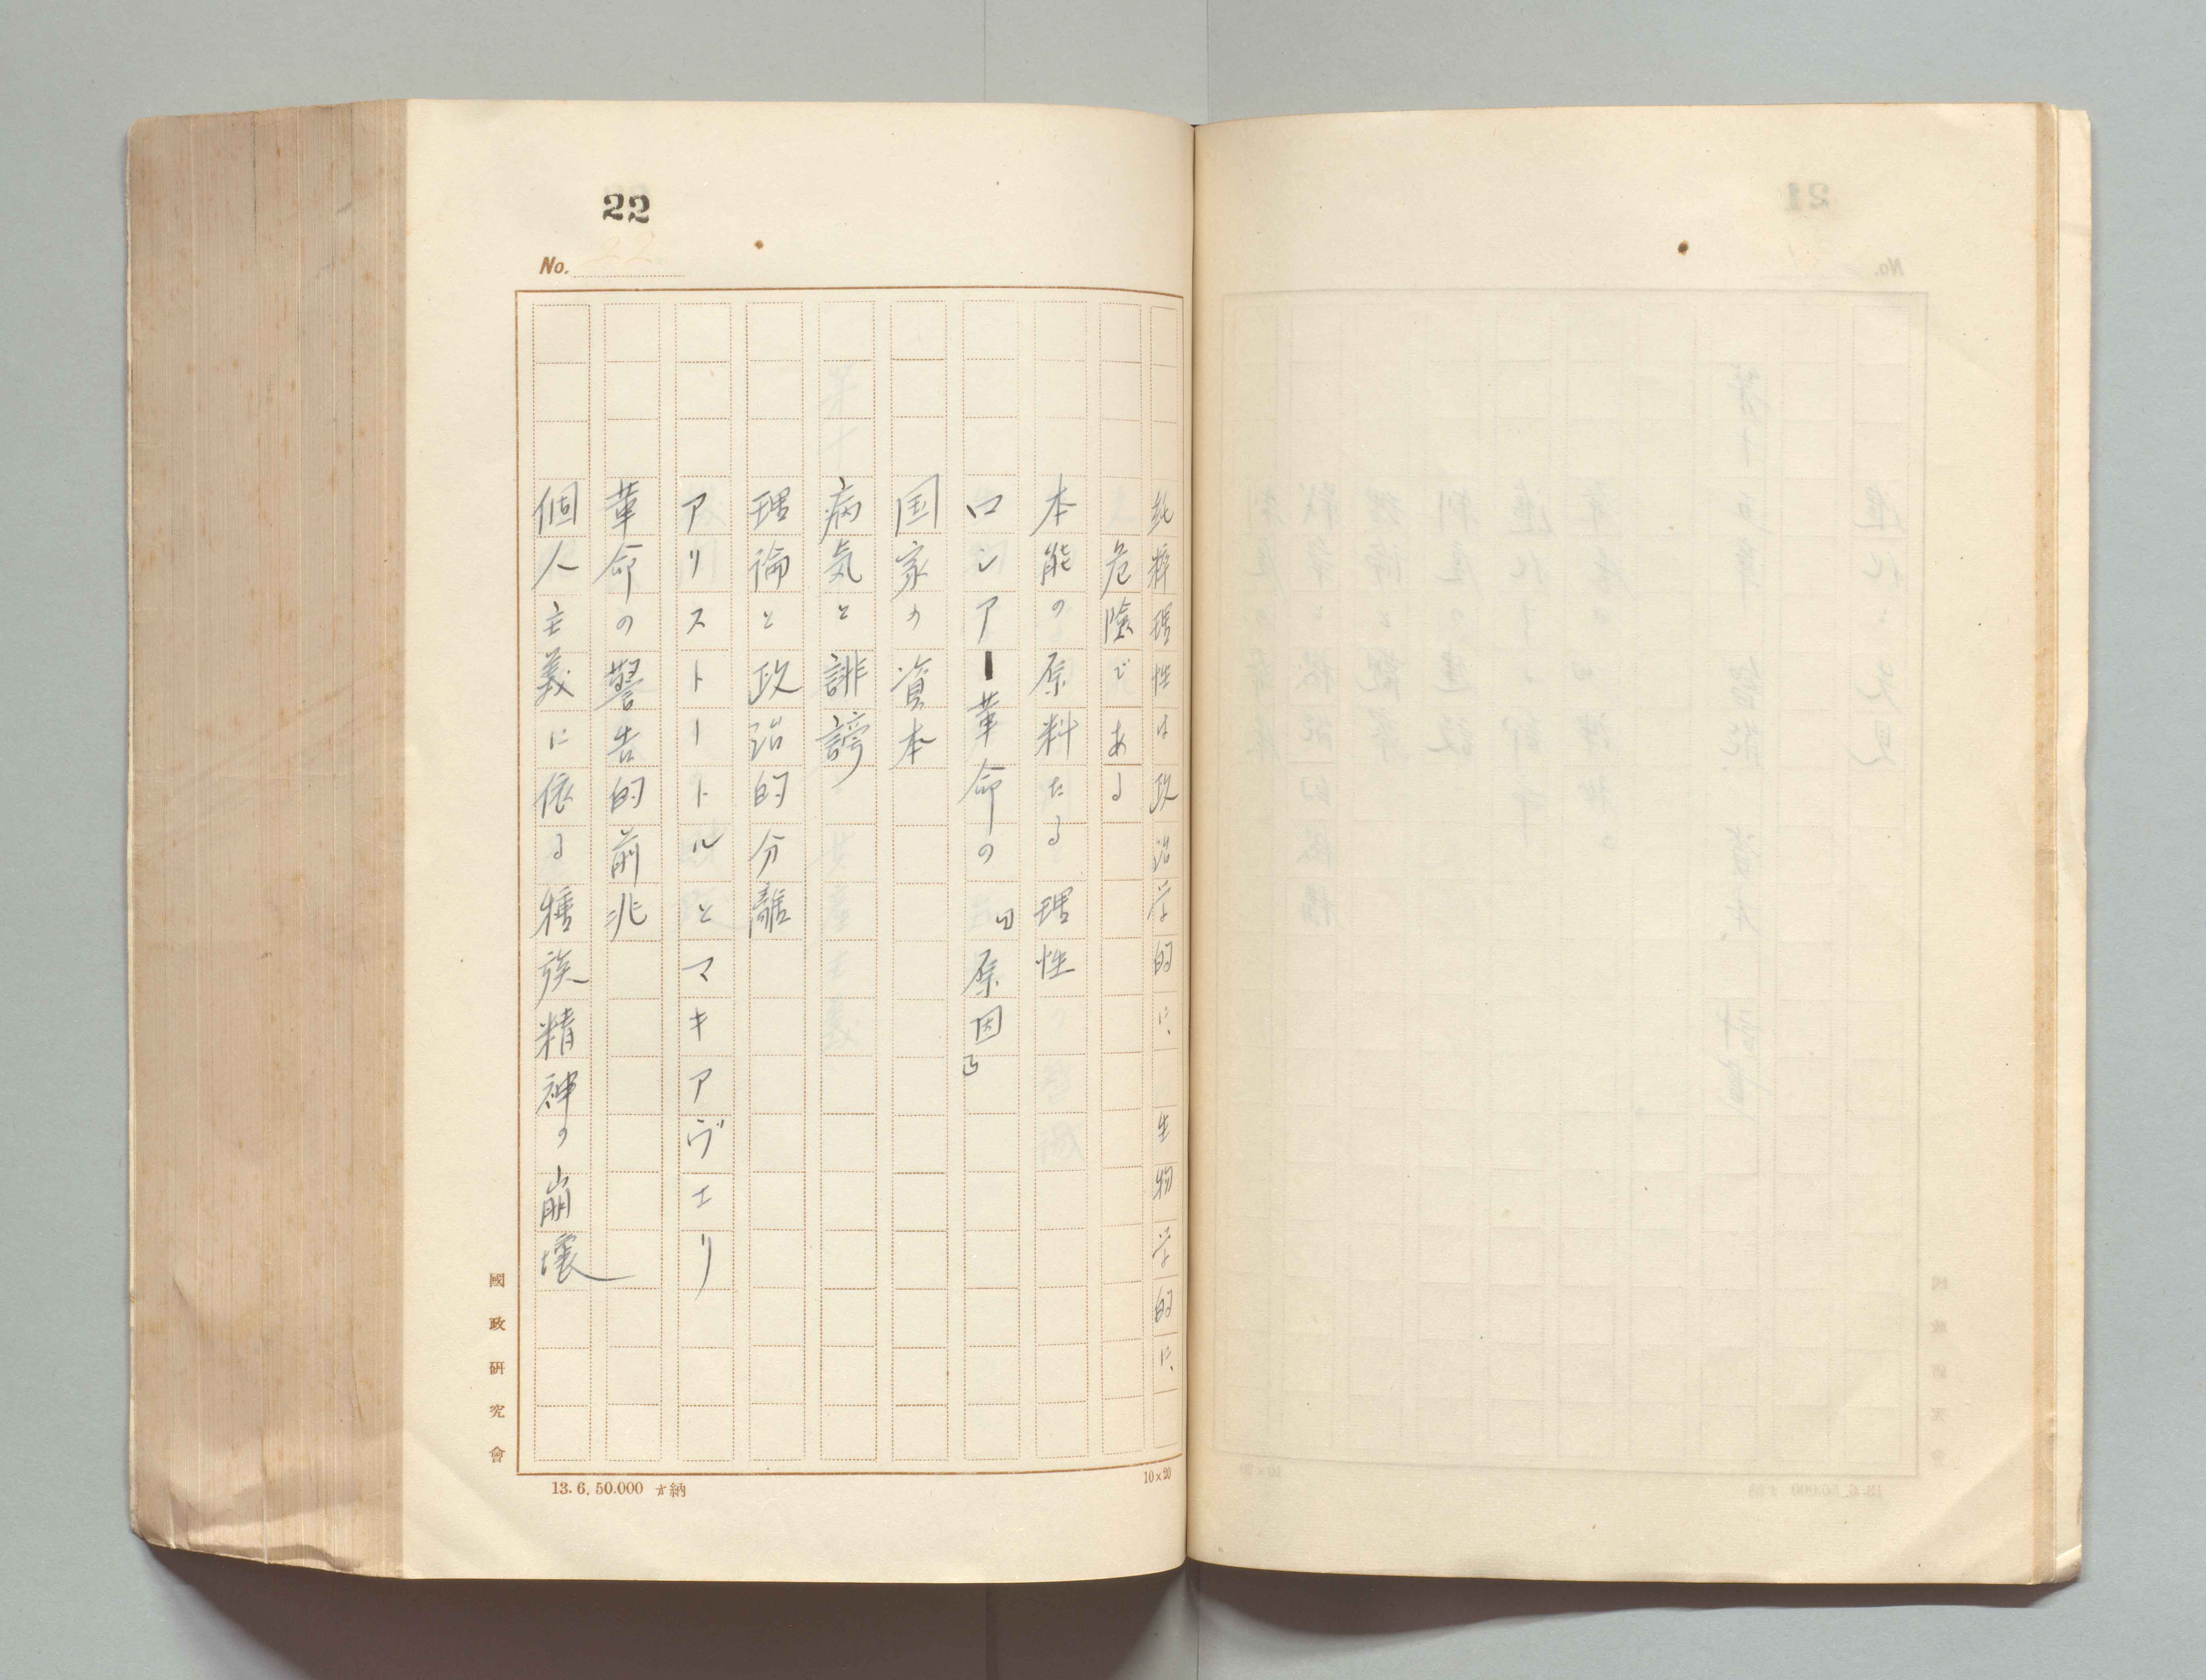 22
No. 22
純粋理性は政治学的に、生物学的に、
危険である
本能の原料たる理性
ロシアー革命の『原因』
国家の資本
病気と誹謗
理論と政治的分離
アリストートルとマキアヴエリ
革命の警告的前兆
個人主義に依る種族精神の崩壊
國政研究會
13. 6. 50.000 才納
10×20